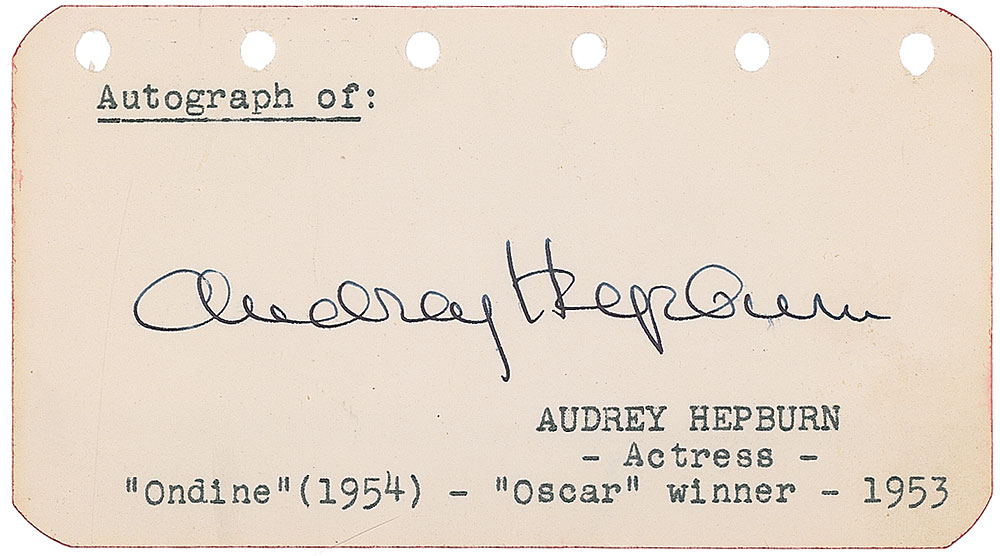 Autograph of:
Audrey Hepburn
AUDREY HEPBURN
- Actress -
"Ondine"(1954) - "Oscar" winner - 1953